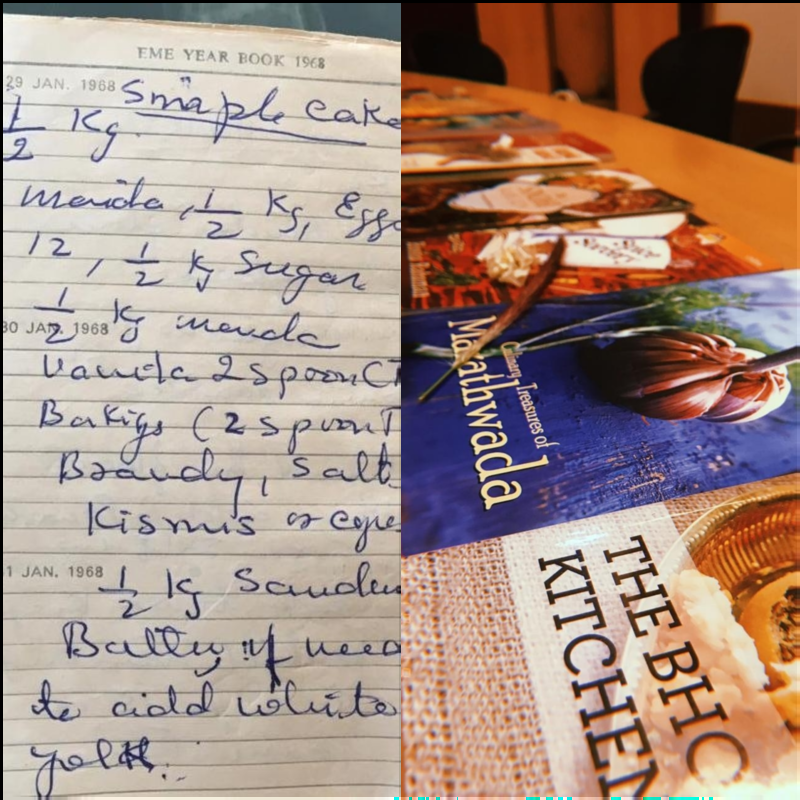 EME YEAR BOOK 1968
29 JAN. 1968
Smaple cake
1/2 Kg.
Maida, 1/2 Kg, Eggs
12, 1/2 Kg Sugar
1/2 Kg
30 JAN. 1968
2 spoon (T
(2 spoon T
Brandy, Salt
Kismis or
1 JAN. 1968
1/2 Kg
if need
to add white
yolk.
Culinary Treasures of
Marathwada
THE BHO
KITCHEN